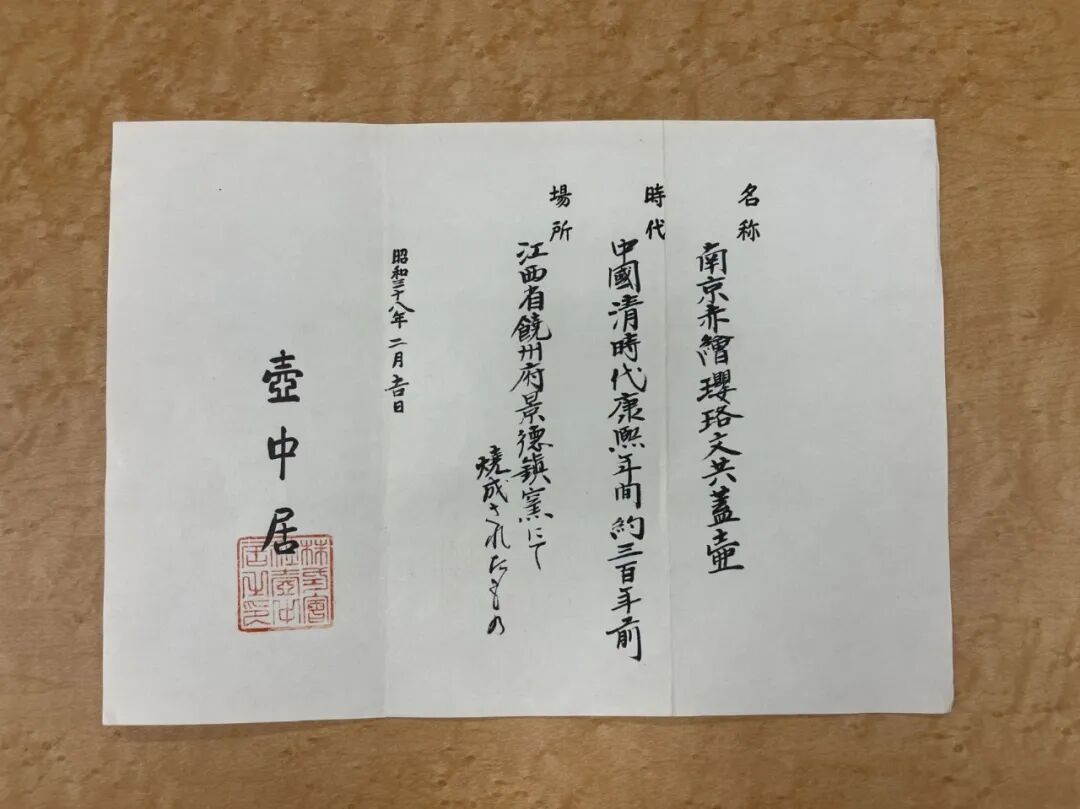 名称
南京赤繪瓔珞文共蓋壷
時代
中國清時代康熙年間約三百年前
場所
江西省饒州府景德鎮窯にて
燒成されたもの
昭和三十八年二月吉日
壺中居
株式會
社壺中
居之印